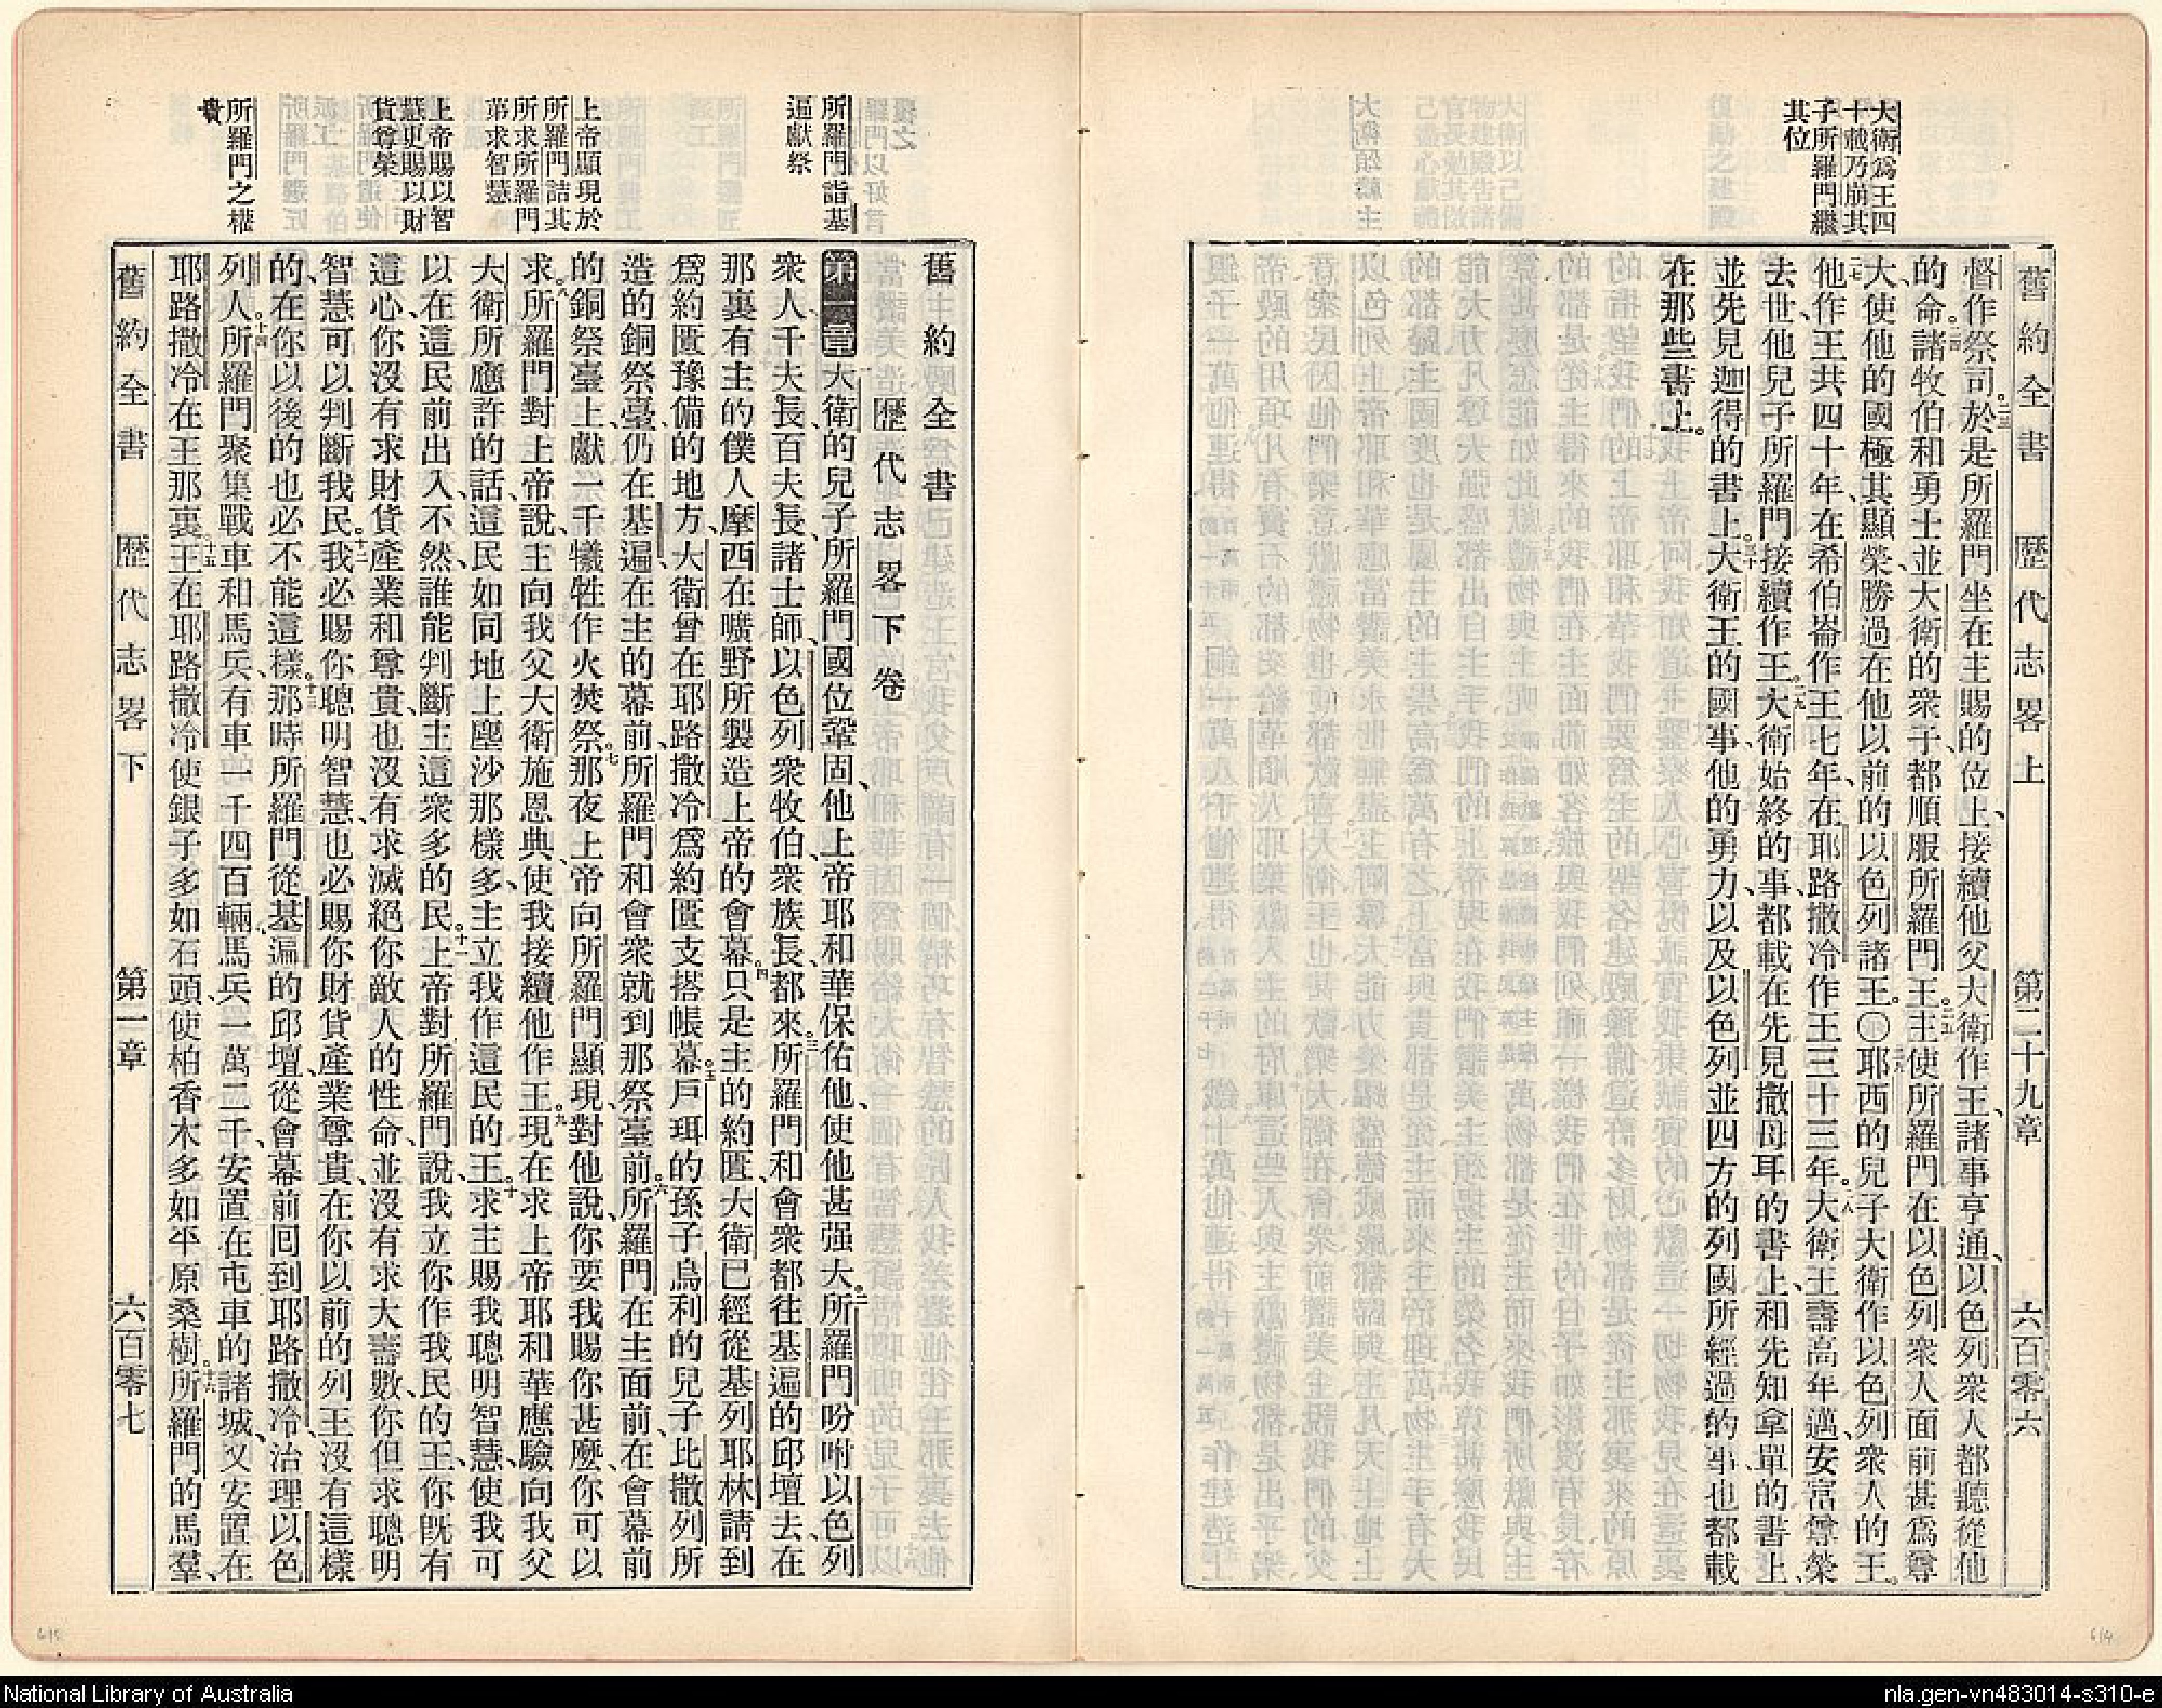 大衛爲王四
十載乃崩其
子所羅門繼
其位
舊約全書 歷代志畧上 第二十九章 六百零六
督作祭司。二三於是所羅門坐在主賜的位上、接續他父大衛作王、諸事亨通、以色列衆人都聽從他
的命。二四諸牧伯和勇士並大衛的衆子、都順服所羅門王。二五主使所羅門在以色列衆人面前甚爲尊
大、使他的國極其顯榮、勝過在他以前的以色列諸王。〇二六耶西的兒子大衛作以色列衆人的王。
二七他作王共四十年、在希伯崙作王七年、在耶路撒冷作王三十三年。二八大衛王壽高年邁、安富尊榮
去世、他兒子所羅門接續作王。二九大衛始終的事、都載在先見撒母耳的書上、和先知拿單的書上、
並先見迦得的書上。三十大衛王的國事、他的勇力、以及以色列並四方的列國所經過的事、也都載
在那些書上。
所羅門詣基
遍獻祭
上帝顯現於
所羅門詰其
所求所羅門
第求智慧
上帝賜以智
慧更賜以財
貨尊榮
所羅門之權
貴
舊約全書
歷代志畧下卷
第一章大衛的兒子所羅門國位鞏固、他上帝耶和華保佑他、使他甚强大。二所羅門吩咐以色列
衆人、千夫長、百夫長、諸士師、以色列衆牧伯、衆族長、都來。三所羅門和會衆都往基遍的邱壇去、在
那裏有主的僕人摩西在曠野所製造上帝的會幕。四只是主的約匱、大衛已經從基列耶林請到
爲約匱豫備的地方、大衛曾在耶路撒冷爲約匱支搭帳幕。五戶珥的孫子烏利的兒子比撒列所
造的銅祭臺、仍在基遍在主的幕前、所羅門和會衆就到那祭臺前。六所羅門在主面前、在會幕前
的銅祭臺上、獻一千犧牲作火焚祭。七那夜上帝向所羅門顯現、對他說、你要我賜你甚麼、你可以
求。八所羅門對上帝說、主向我父大衛施恩典、使我接續他作王。九現在求上帝耶和華應驗向我父
大衛所應許的話、這民如同地上塵沙那樣多、主立我作這民的王。十求主賜我聰明智慧、使我可
以在這民前出入、不然、誰能判斷主這衆多的民。十一上帝對所羅門說、我立你作我民的王、你旣有
這心、你沒有求財貨產業和尊貴、也沒有求滅絕你敵人的性命、並沒有求大壽數、你但求聰明
智慧可以判斷我民。十二我必賜你聰明智慧、也必賜你財貨產業尊貴、在你以前的列王沒有這樣
的、在你以後的也必不能這樣。十三那時所羅門從基遍的邱壇、從會幕前回到耶路撒冷、治理以色
列人。十四所羅門聚集戰車和馬兵、有車一千四百輛、馬兵一萬二千、安置在屯車的諸城、又安置在
耶路撒冷在王那裏。十五王在耶路撒冷使銀子多如石頭、使柏香木多如平原桑樹。十六所羅門的馬羣、
舊約全書 歷代志畧下 第一章 六百零七
615
614
National Library of Australia
nla.gen-vn483014-s310-e